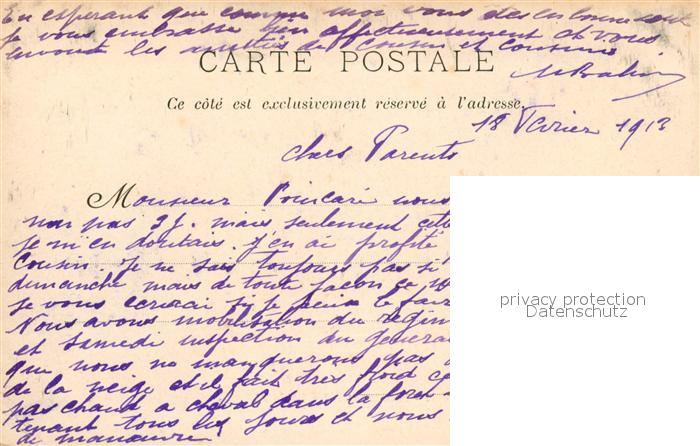 En esperant que comme moi vous etes en bonne santé
je vous embrasse bien affectueusement et vous
envoie les amitiés de Cousin et Cousine
CARTE POSTALE
Ce côté est exclusivement réservé à l'adresse.
18 Fevrier 1913
chers Parents
Monsieur Poincaré nous
non pas 3 j. mais seulement cette
je m'en doutais. j'en ai profité
Cousin. Je ne sais toujours pas si
dimanche mais de toute façon
je vous ecrirai si je peux le faire
Nous avons mobilisation du regim
et samedi inspection du general
que nous ne manquerons pas
de la neige et il fait très froid
pas chaud a cheval dans la foret
tenant tous les jours et nous
de manœuvre
privacy protection
Datenschutz